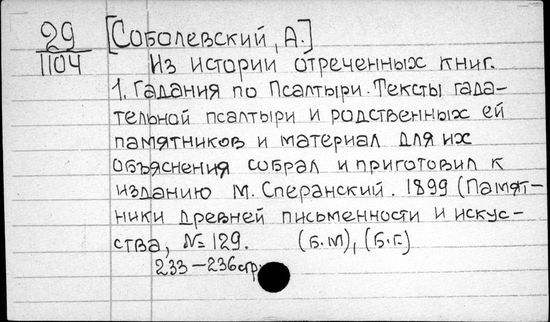 29
1104
[Соболевский, А.]
Из истории отреченных книг.
1. Гадания по Псалтыри. Тексты гада-
тельной псалтыри и родственных ей
памятников и материал для их
объяснения собрал и приготовил к
изданию М. Сперанский. 1899 (Памят-
ники древней письменности и искус-
ства, №129. (б.м), (б.г.)
233-236стр.